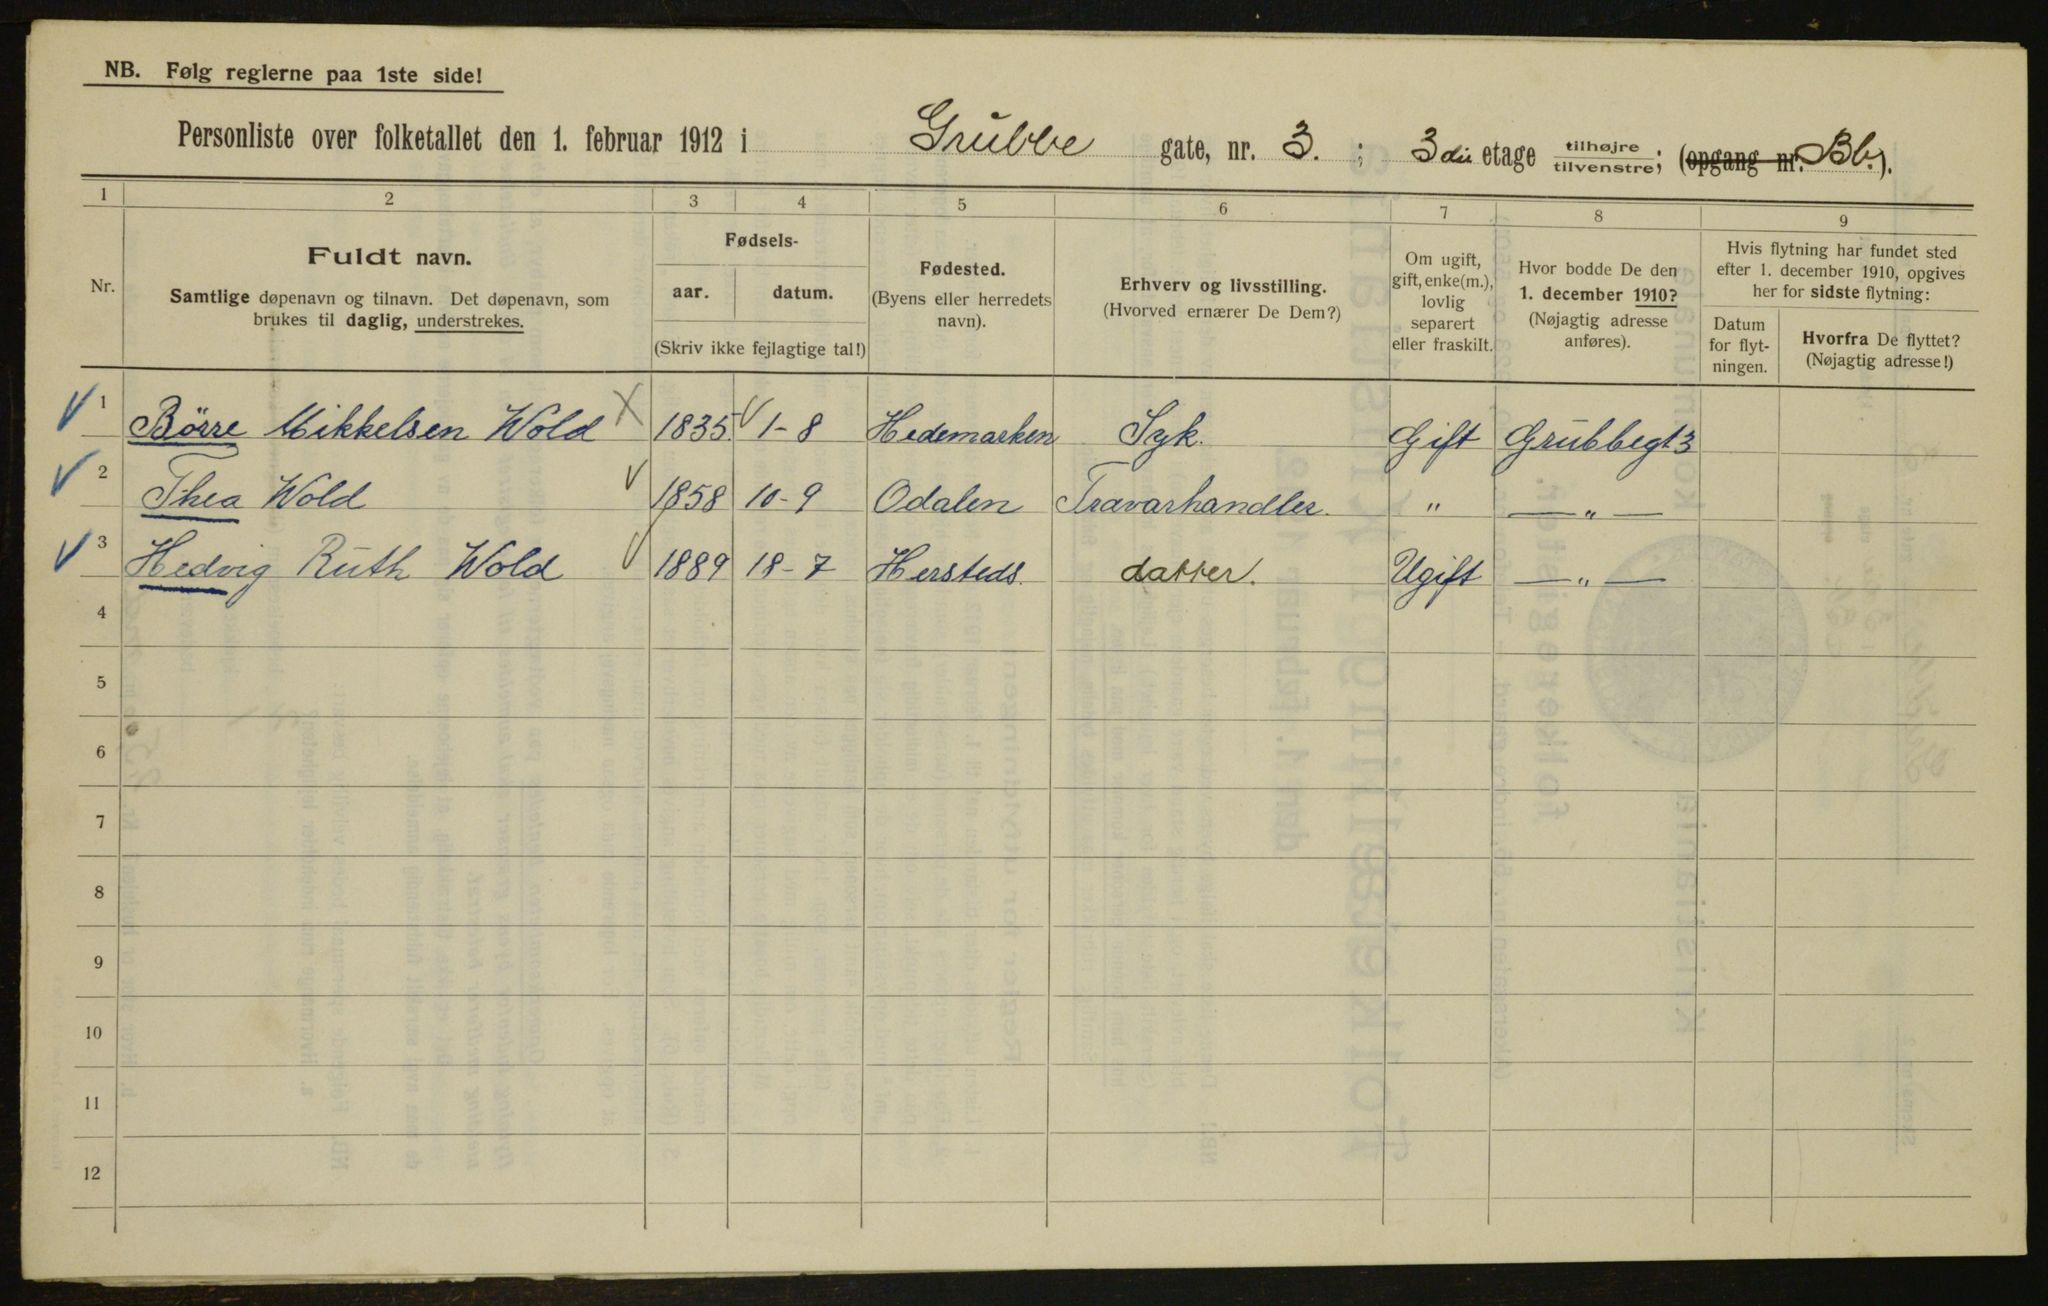 NB. Følg reglerne paa 1ste side!
Personliste over folketallet den 1. februar 1912 i Grubbe gate, nr. 3. ; 3die etage tilhøjre tilvenstre; (opgang nr. Bb.).
1 2 3 4 5 6 7 8 9
Nr.
Fuldt navn.
Samtlige døpenavn og tilnavn. Det døpenavn, som
brukes til daglig, understrekes.
Fødsels-
aar. datum.
(Skriv ikke fejlagtige tal!)
Fødested.
(Byens eller herredets
navn).
Erhverv og livsstilling.
(Hvorved ernærer De Dem?)
Om ugift,
gift, enke(m.),
lovlig
separert
eller fraskilt.
Hvor bodde De den
1. december 1910?
(Nøjagtig adresse
anføres).
Hvis flytning har fundet sted
efter 1. december 1910, opgives
her for sidste flytning:
Datum
for flyt-
ningen.
Hvorfra De flyttet?
(Nøjagtig adresse!)
1 Börre Mikkelsen Wold 1835. 1-8 Hedemarken Syk. Gift Grubbegt 3
2 Thea Wold 1858 10-9 Odalen Travarhandler. " — " —
3 Hedvig Ruth Wold 1889 18-7 Hersteds. datter. Ugift — " —
4
5
6
7
8
9
10
11
12